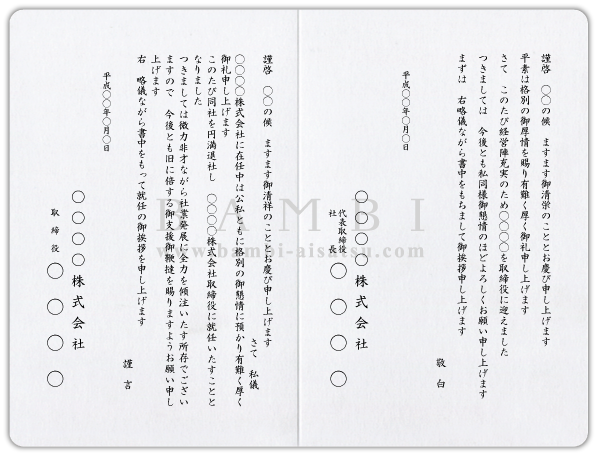 謹啓　〇〇の候　ますます御清栄のこととお慶び申し上げます
平素は格別の御厚情を賜り有難く厚く御礼申し上げます
さて　このたび経営陣充実のため〇〇〇〇を取締役に迎えました
つきましては　今後とも私同様御懇情のほどよろしくお願い申し上げます
まずは　右略儀ながら書中をもちまして御挨拶申し上げます
敬白
平成〇〇年〇月〇日
〇〇〇〇株式会社
代表取締役
社長　〇〇〇〇
謹啓　〇〇の候　ますます御清祥のこととお慶び申し上げます
さて　私儀
〇〇〇〇株式会社に在任中は公私ともに格別の御懇情に預かり有難く厚く
御礼申し上げます
このたび同社を円満退社し　〇〇〇〇株式会社取締役に就任いたすことと
なりました
つきましては微力非才ながら社業発展に全力を傾注いたす所存でござい
ますので　今後とも旧に倍する御支援御鞭撻を賜りますようお願い申し
上げます
右　略儀ながら書中をもって就任の御挨拶を申し上げます
謹言
平成〇〇年〇月〇日
〇〇〇〇株式会社
取締役　〇〇〇〇
BAMBI
www.bambi-aisatsu.com